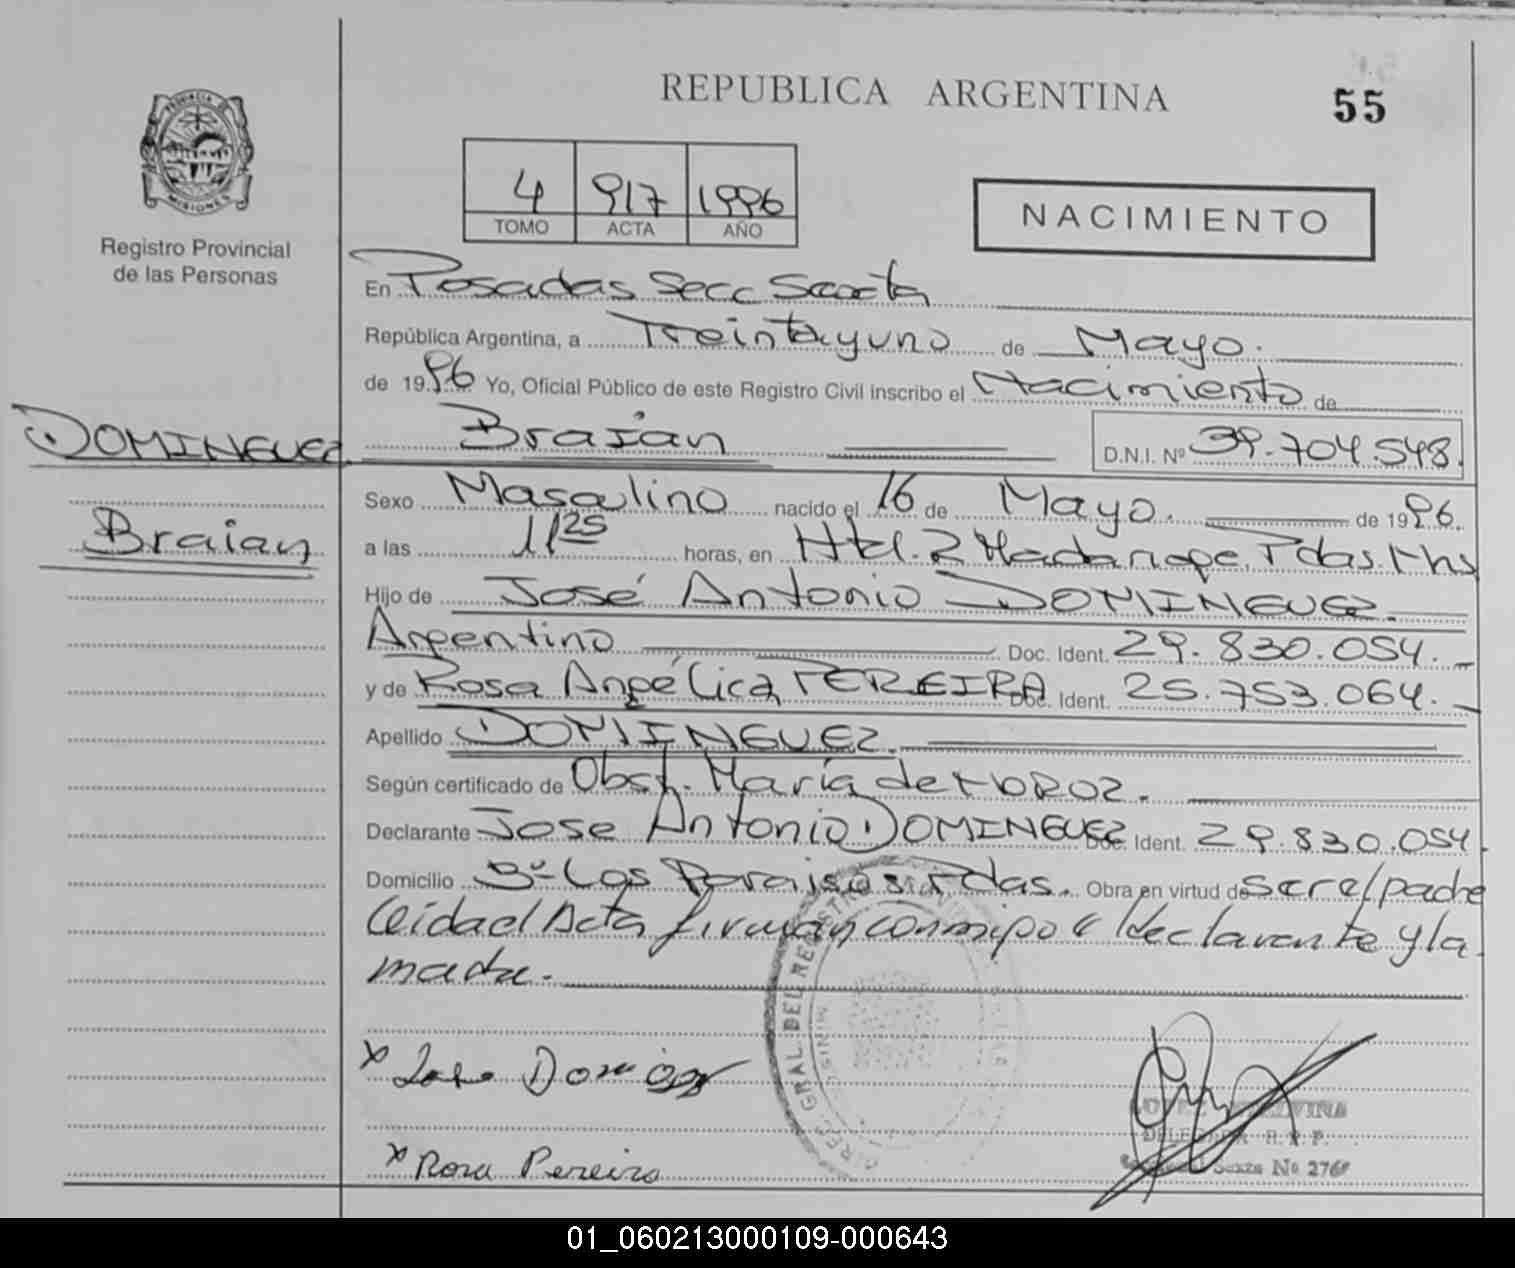 REPUBLICA ARGENTINA
55
PROVINCIA DE
MISIONES
Registro Provincial
de las Personas
4 917 1996
TOMO ACTA AÑO
NACIMIENTO
En Posadas Secc Sexta
República Argentina, a Treintayuno de Mayo.
de 1996 Yo, Oficial Público de este Registro Civil inscribo el Nacimiento de
DOMINGUEZ
Braian
Braian D.N.I. Nº 39.704.548.
Sexo Masculino nacido el 16 de Mayo. de 1996.
a las 11 25 horas, en Htal. R Madariaga. Pdas. Mns
Hijo de José Antonio DOMINGUEZ.
Argentino Doc. Ident. 29.830.054.
y de Rosa Angélica PEREIRA Doc. Ident. 25.753.064.
Apellido DOMINGUEZ.
Según certificado de Obst. María de
Declarante Jose Antonio DOMINGUEZ Doc. Ident. 29.830.054.
Domicilio Bº Los Paraisos Pdas. Obra en virtud de ser el padre
leida el Acta firman conmigo el declarante y la
madre.
x Jose Dominguez
x Rosa Pereira
DIREC. GRAL. DEL REGISTRO
MINIS
DELEGADA R.P.P.
Sexta No 276
01_060213000109-000643